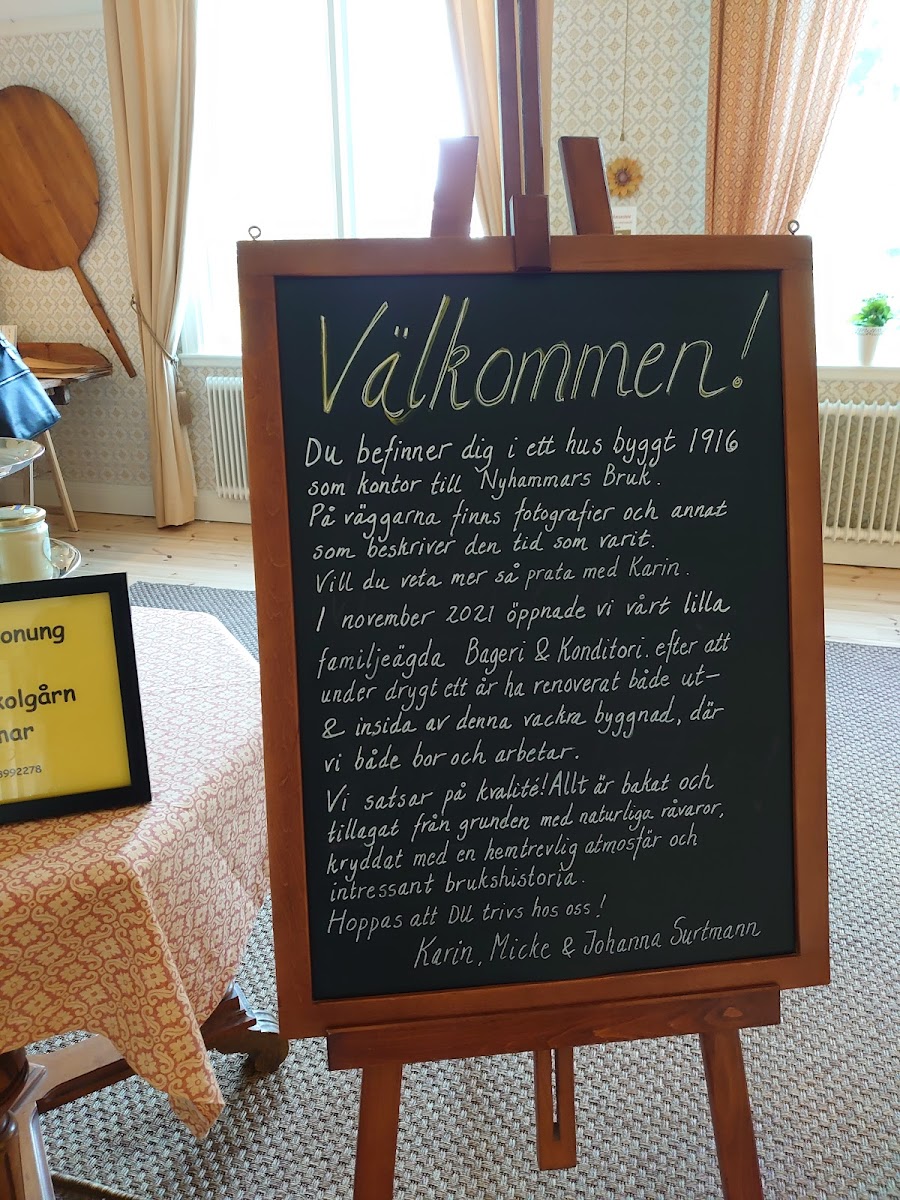 Välkommen!
Du befinner dig i ett hus byggt 1916
som kontor till Nyhammars Bruk.
På väggarna finns fotografier och annat
som beskriver den tid som varit.
Vill du veta mer så prata med Karin.
1 november 2021 öppnade vi vårt lilla
familjeägda Bageri & Konditori. efter att
under drygt ett år ha renoverat både ut-
& insida av denna vackra byggnad, där
vi både bor och arbetar.
Vi satsar på kvalité! Allt är bakat och
tillagat från grunden med naturliga råvaror,
kryddat med en hemtrevlig atmosfär och
intressant brukshistoria.
Hoppas att DU trivs hos oss!
Karin, Micke & Johanna Surtmann
onung
kolgårn
mar
8992278